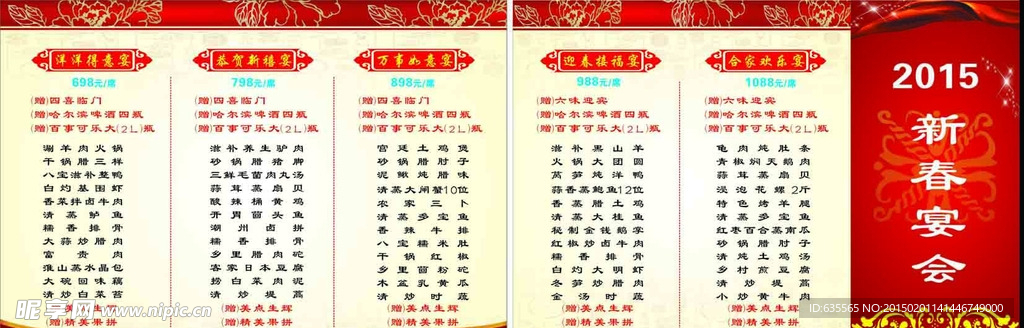 洋洋得意宴
698元/席
(赠)四喜临门
(赠)哈尔滨啤酒四瓶
(赠)百事可乐大(2L)瓶
涮羊肉火锅
干锅腊三样
八宝滋补整鸭
白灼基围虾
香菜拌卤牛肉
清蒸鲈鱼
糯香排骨
大蒜炒腊肉
富贵肉
淮山蒸水晶包
大碗回味藕
清炒白菜苔
(赠)美点生辉
(赠)精美果拼
恭贺新禧宴
798元/席
(赠)四喜临门
(赠)哈尔滨啤酒四瓶
(赠)百事可乐大(2L)瓶
滋补养生驴肉
砂锅腊猪脚
三鲜毛菌肉丸汤
蒜茸蒸扇贝
酸辣桶黄鸡
开胃茴头鱼
潮州卤拼
糯香排骨
乡里腊肉砣
客家日本豆腐
捞白菜肉泥
清炒时蔬
(赠)美点生辉
(赠)精美果拼
万事如意宴
898元/席
(赠)四喜临门
(赠)哈尔滨啤酒四瓶
(赠)百事可乐大(2L)瓶
宫廷土鸡煲
砂锅腊肘子
泥鳅炖腊味
清蒸大闸蟹10位
农家三卜
清蒸多宝鱼
香辣牛排
八宝糯米肚
干锅红椒
乡里茴粉砣
木盆乳黄瓜
清炒时蔬
(赠)美点生辉
(赠)精美果拼
迎春接福宴
988元/席
(赠)六味迎宾
(赠)哈尔滨啤酒四瓶
(赠)百事可乐大(2L)瓶
滋补黑山羊
火锅大团圆
莴笋炖洋鸭
蒜香蒸鲍鱼12位
香蒸腊土鸡
清蒸大桂鱼
秘制金钱鹅掌
红椒炒卤牛肉
乡里炒扣肉
白灼大明虾
冬笋炒腊肉
金汤时蔬
(赠)美点生辉
(赠)精美果拼
合家欢乐宴
1088元/席
(赠)六味迎宾
(赠)哈尔滨啤酒四瓶
(赠)百事可乐大(2L)瓶
龟肉炖肚条
青椒焖天鹅肉
蒜茸蒸扇贝
浸泡花螺2斤
特色烤羊腿
清蒸多宝鱼
红枣百合蒸南瓜
砂锅腊肘子
清汤肉丸汤
乡村煎豆腐
清炒时蔬
小炒黄牛肉
(赠)美点生辉
(赠)精美果拼
2015
新春宴会
昵享网 www.nipic.cn
ID:635565 NO:20150201141446749000